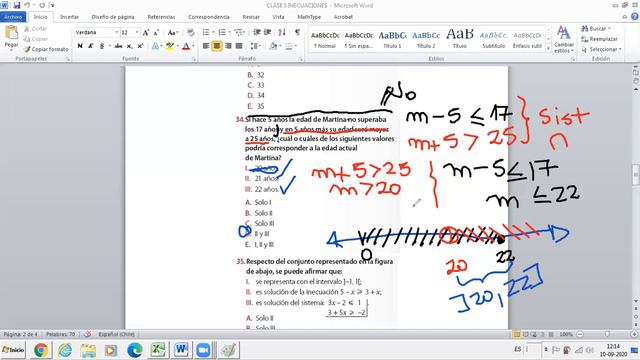 CLASE 5 INECUACIONES - Microsoft Word
Archivo Inicio Insertar Diseño de página Referencias Correspondencia Revisar Vista MathType Acrobat
Verdana 12
Pegar
Portapapeles Fuente Párrafo Estilos
AaBbCcDc AaBbCcDc AaBbCc AaBbCc AaB
¶ Normal ¶ Sin espa... Título 1 Título 2 Título
Cambiar estilos
Edición
B. 32
C. 33
D. 34
E. 35
No
34. Si hace 5 años la edad de Martina no superaba
los 17 años y en 5 años más su edad será mayor
a 25 años, ¿cuál o cuáles de los siguientes valores
podría corresponder a la edad actual
de Martina?
I. 20 años.
II. 21 años.
III. 22 años.
A. Solo I
B. Solo II
C. Solo III
D. II y III
E. I, II y III
m - 5 ≤ 17
m + 5 > 25
Sist
∩
m + 5 > 25
m > 20
m - 5 ≤ 17
m ≤ 22
0 20 22
]20, 22]
35. Respecto del conjunto representado en la figura
de abajo, se puede afirmar que:
I. se representa con el intervalo ]-1, 1[;
II. es solución de la inecuación 5 – x ≥ 3 + x;
III. es solución del sistema: 3x – 2 ≤ 1
3 + 5x ≥ –2
A. Solo II
B. Solo III
Página: 2 de 4 Palabras: 70 Español (Chile) 100%
ES 12:14
10-09-2020